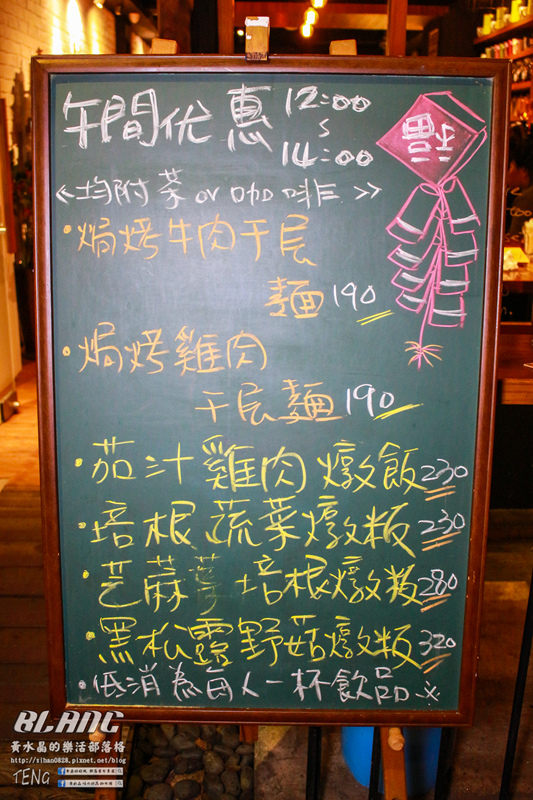 午間优惠 12:00
~
14:00
福
<<均附茶or咖啡>>
·焗烤牛肉千层
麵 190
·焗烤雞肉
千层麵 190
·茄汁雞肉燉飯 230
·培根蔬菜燉飯 230
·芝蔴葉培根燉飯 280
·黑松露野菇燉飯 320
·低消為每人一杯飲品※
BLANC
黃水晶的樂活部落格
http://sihao0828.pixnet.net/blog
TENG